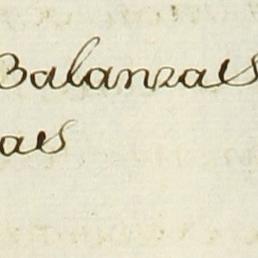 Balanzas
as